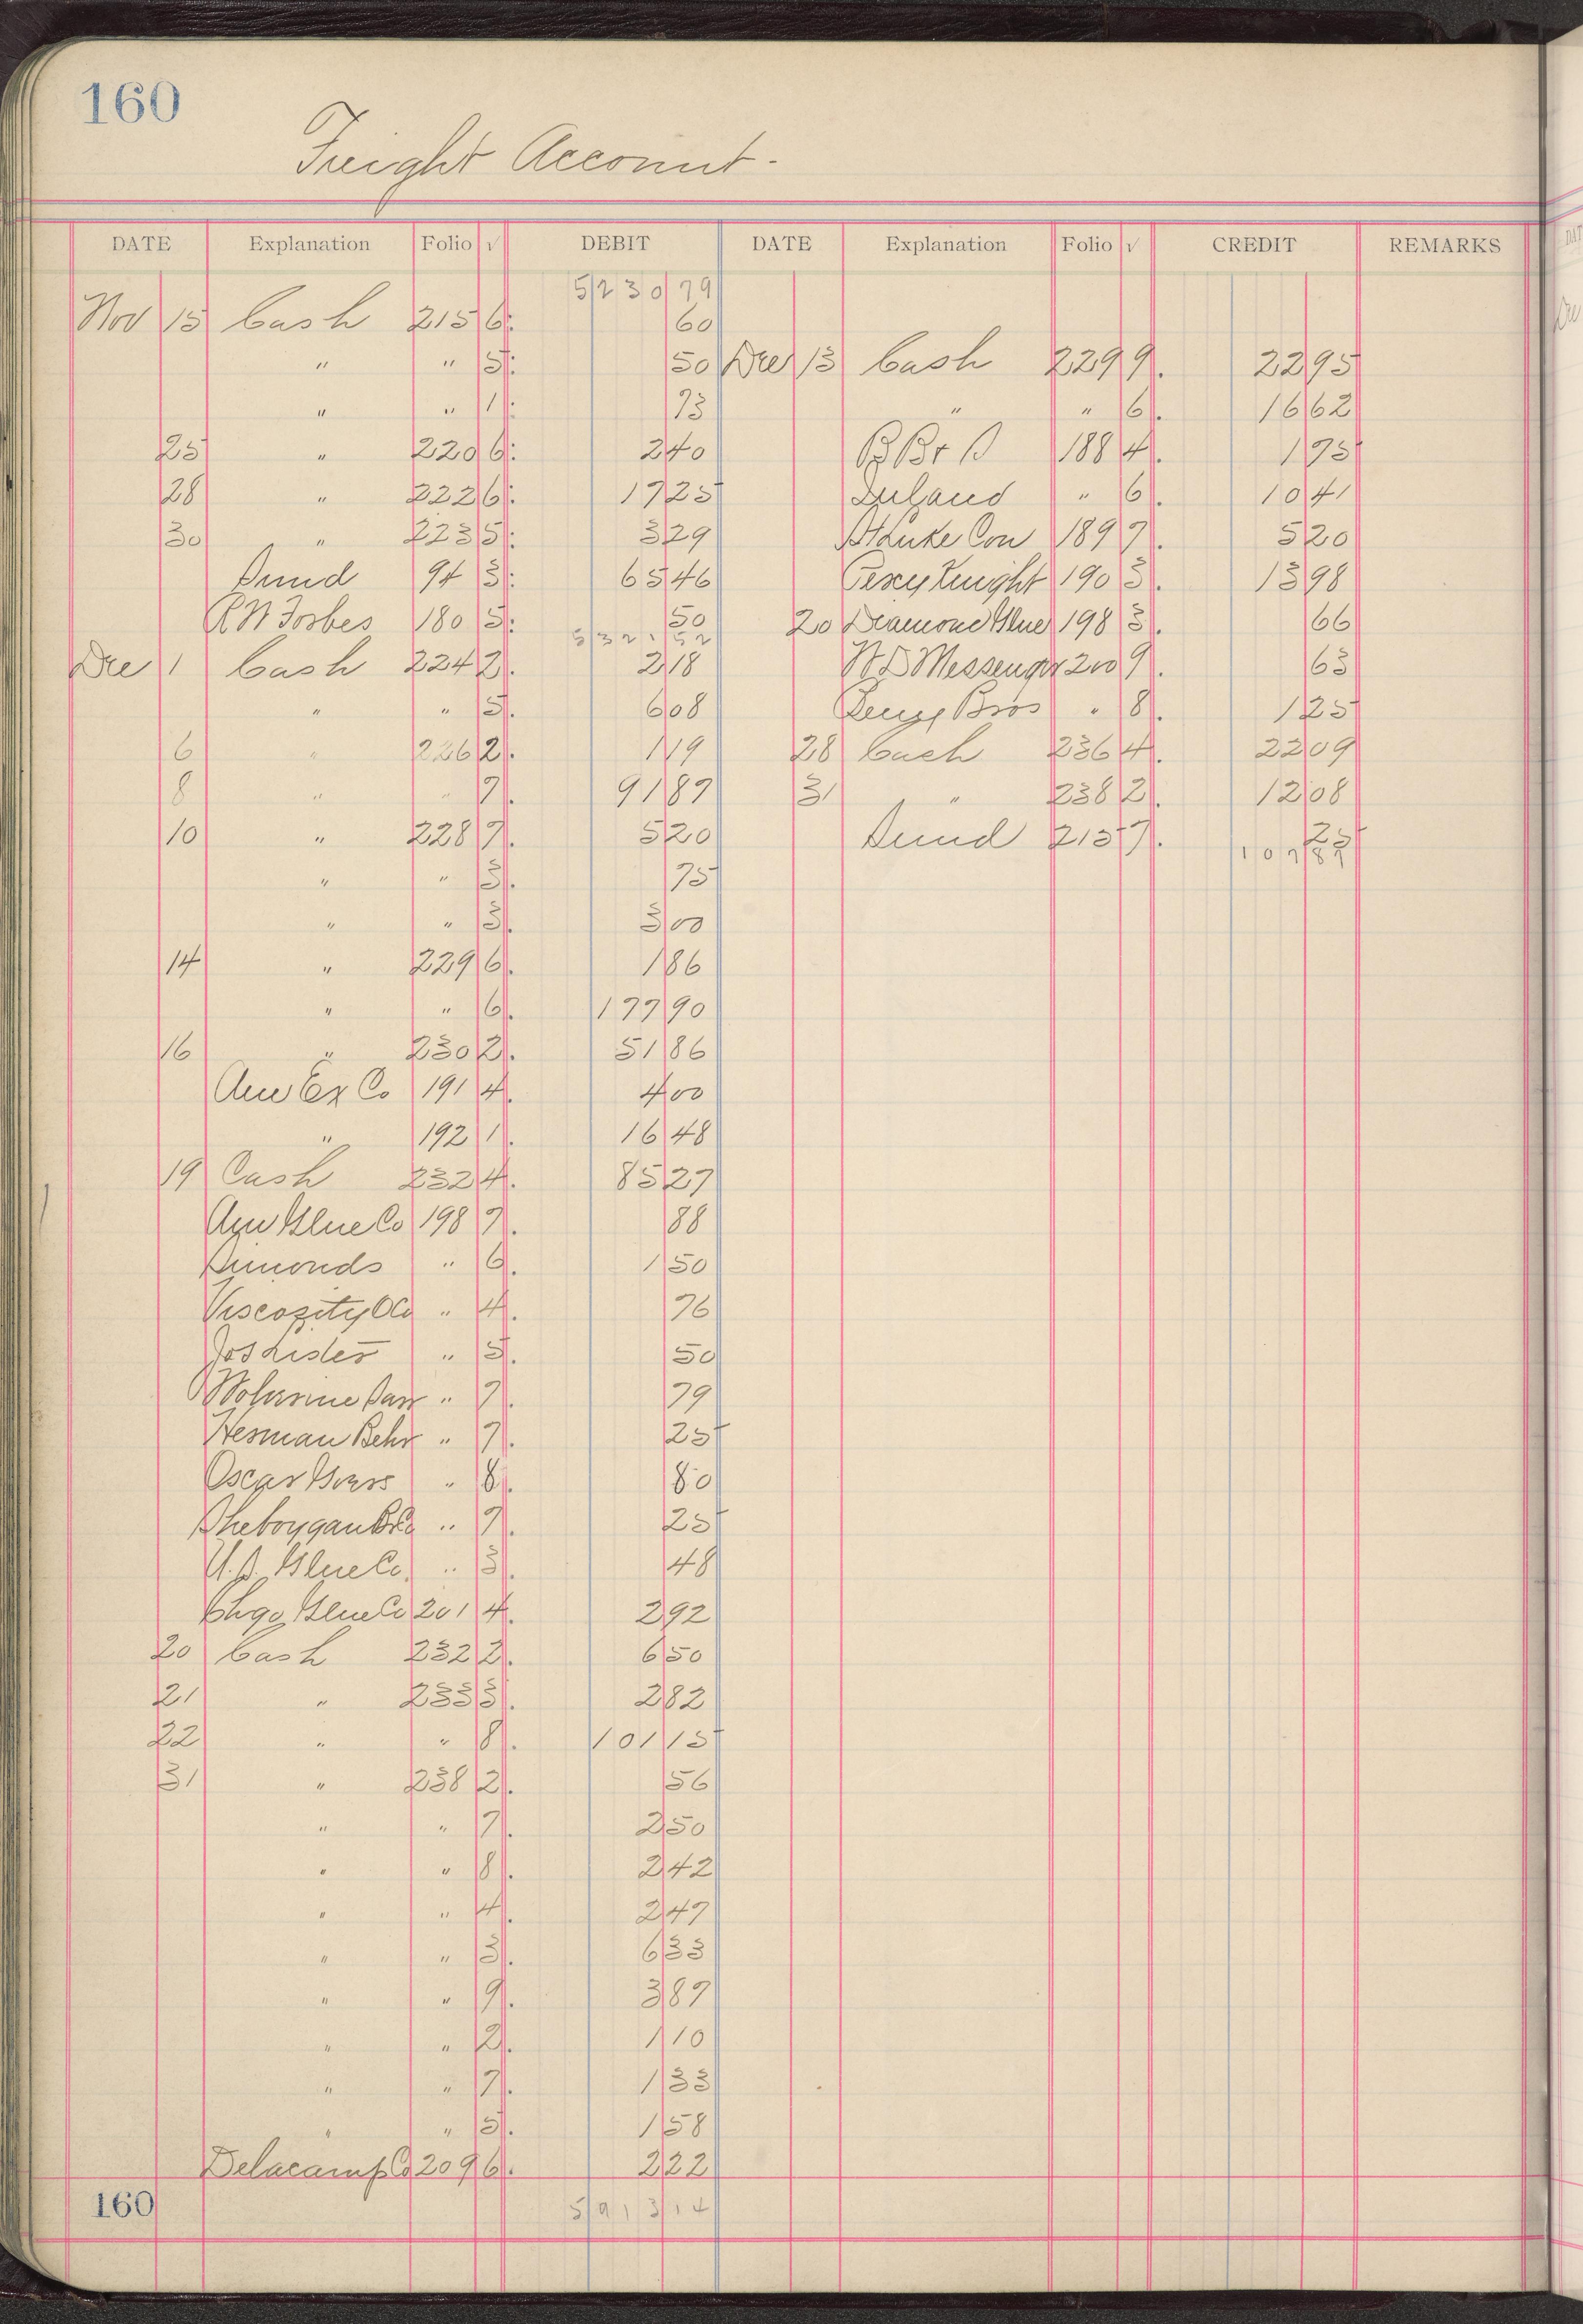 160
Freight Account.
DATE Explanation Folio √ DEBIT DATE Explanation Folio √ CREDIT REMARKS
5230 79
Nov 15 Cash 215 6 60
" " 5 50 Dec 13 Cash 229 9 22 95
" " 1 73 " " 6 16 62
25 " 220 6 2 40 B Br S 188 4 1 75
28 " 222 6 17 25 Inland " 6 10 41
30 " 223 5 3 29 St Luke Con 189 7 5 20
Sund 94 3 65 46 Percy Knight 190 3 13 98
R W Forbes 180 5 50 20 Diamond Glue 198 3 66
5321 52
Dec 1 Cash 224 2 2 18 W D Messenger 200 9 63
" " 5 6 08 Bros " 8 1 25
6 " 226 2 1 19 28 Cash 236 4 22 09
8 " " 7 91 87 31 " 238 2 12 08
10 " 228 7 5 20 Sund 215 7 25
107 87
" " 3 75
" " 3 3 00
14 " 229 6 1 86
" " 6 177 90
16 " 230 2 51 86
Am Ex Co 191 4 4 00
" 192 1 16 48
19 Cash 232 4 85 27
Am Glue Co 198 7 88
Simonds " 6 1 50
Viscosity O Co " 4 76
Jos Lister " 5 50
Wolverine " 7 79
Herman Behr " 7 25
Oscar " 8 80
Sheboygan " 7 25
U.S. Glue Co. " 3 48
Chgo Glue Co 201 4 2 92
20 Cash 232 2 6 50
21 " 233 3 2 82
22 " " 8 101 15
31 " 238 2 56
" " 7 2 50
" " 8 2 42
" " 4 2 47
" " 3 6 33
" " 9 3 87
" " 2 1 10
" " 7 1 33
" " 5 1 58
Delacamp Co 209 6 2 22
160 5913 14